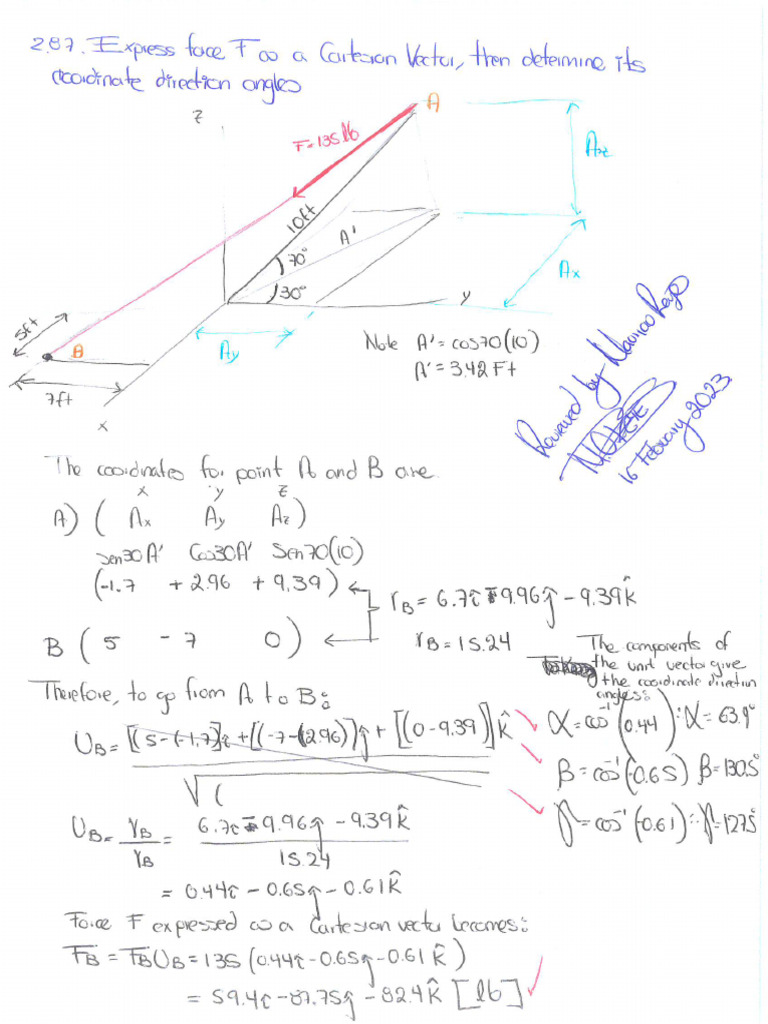 2.87. Express force F as a Cartesian Vector, then determine its
coordinate direction angles
z
A
F=135 lb
Az
10ft
A'
70°
Ax
30°
y
5ft
B
Ay
7ft
x
Note A' = cos70(10)
A' = 3.42 Ft
Reviewed by Mauricio
16 February 2023
The coordinates for point A and B are
x y z
A) ( Ax Ay Az )
sen30A' Cos30A' Sen70(10)
(-1.7 +2.96 +9.39)
rB = 6.7i - 9.96j - 9.39k̂
B ( 5 - 7 0 )
rB = 15.24
The components of
the unit vector give
the coordinate direction
angles:
Therefore, to go from A to B:
UB = [(5-(-1.7)]i + [(-7-(2.96)]j + [(0-9.39)]k̂
√(
α = cos⁻¹(0.44) ∴ α = 63.9°
β = cos⁻¹(-0.65) β = 130.5°
γ = cos⁻¹(-0.61) ∴ γ = 127.5°
UB = rB/rB = 6.7i - 9.96j - 9.39k̂ / 15.24
= 0.44i - 0.65j - 0.61k̂
Force F expressed as a Cartesian vector becomes:
FB = FBUB = 135 (0.44i - 0.65j - 0.61k̂)
= 59.4i - 87.75j - 82.4k̂ [lb]